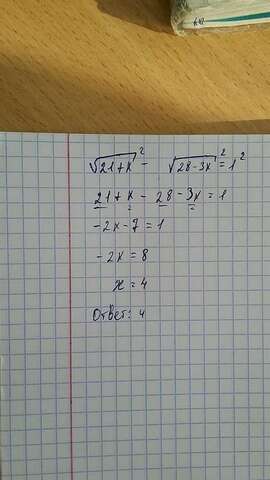 √21+x² - √28-3x² = 1²
21+x - 28-3x = 1
-2x-7=1
-2x=8
x=4
Ответ: 4